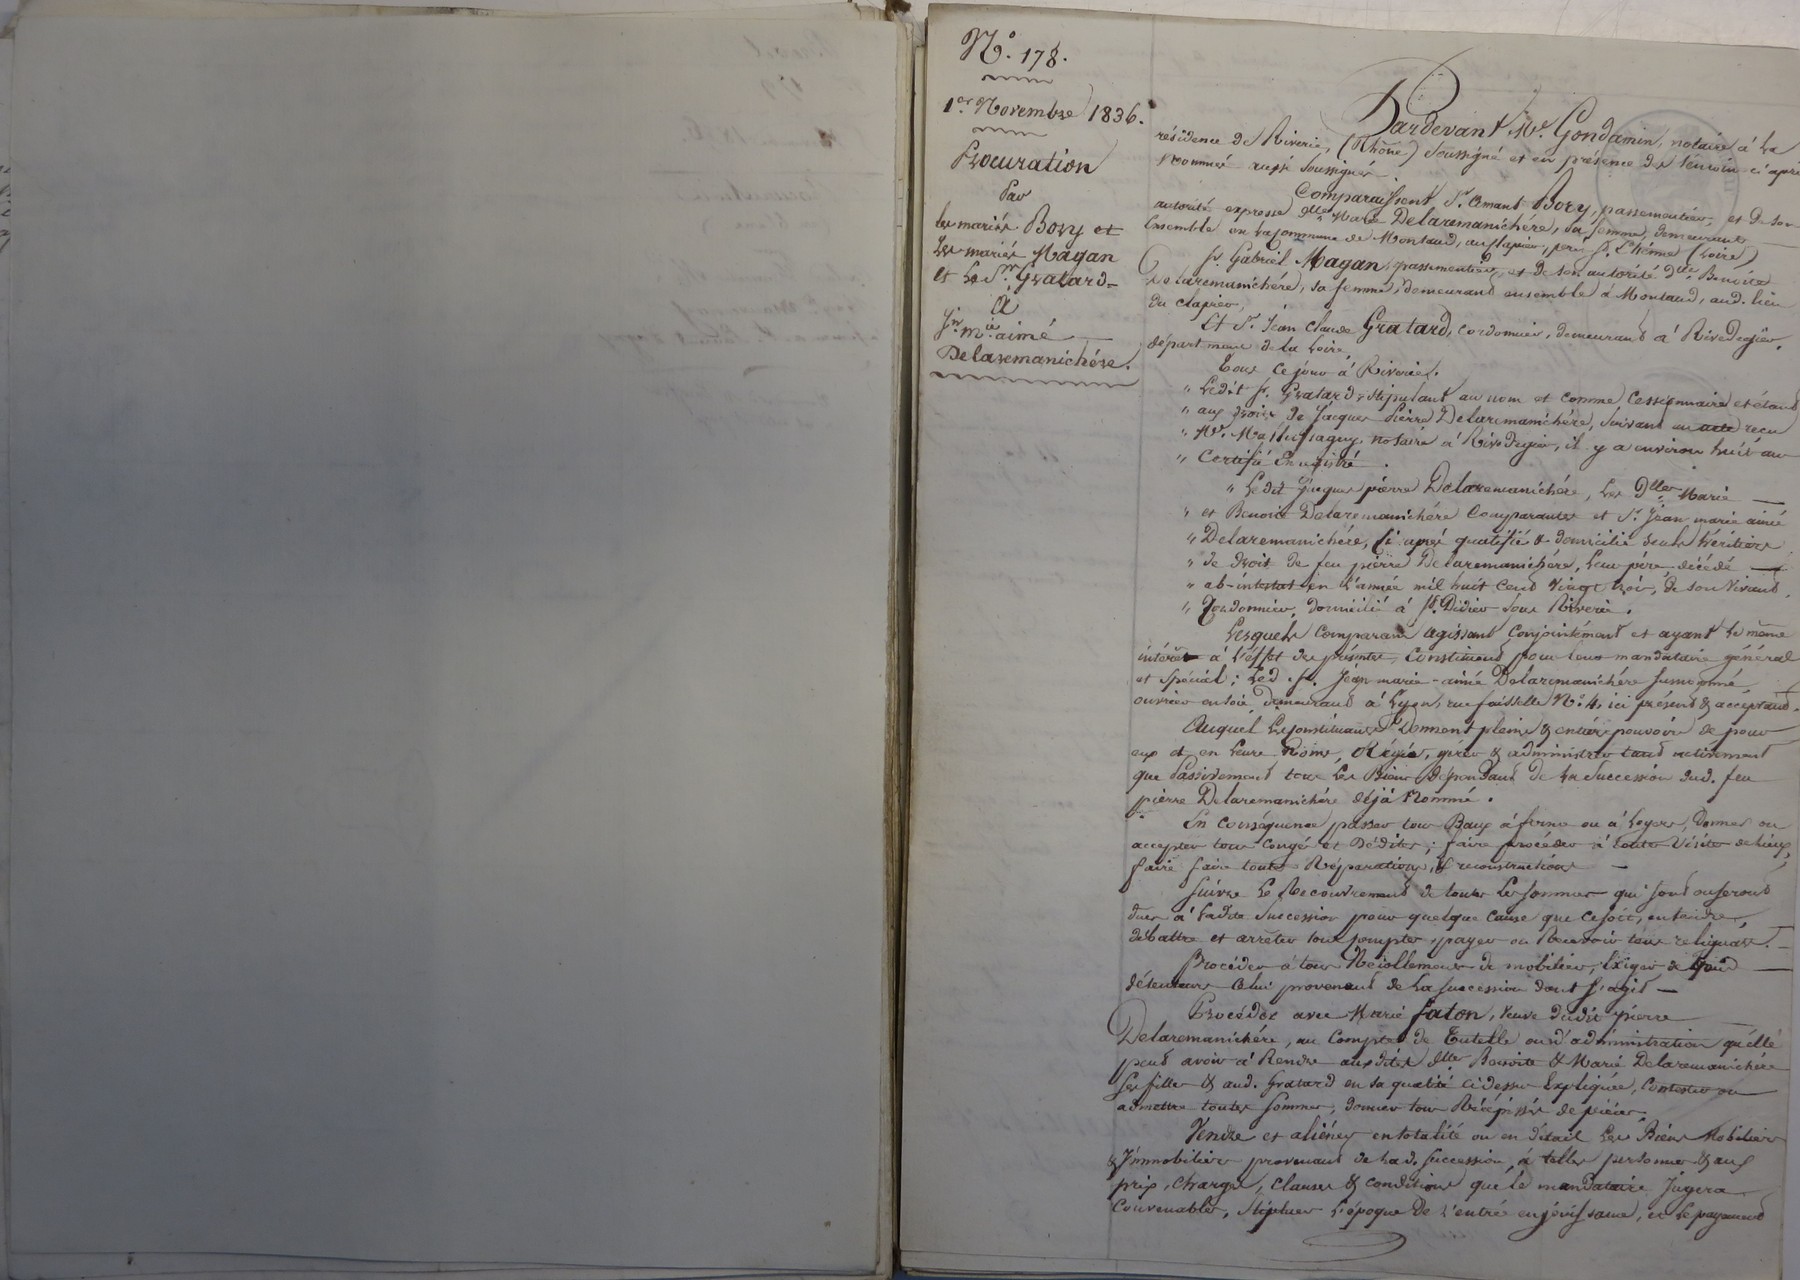 N.° 178.
1er Novembre 1836.
Procuration
Par
les mariés Bory et
les mariés Magan
et le Sr. Gratard
A
Jn. mie. aimé
Delaremanichére.
Pardevant Me. Gondamin, notaire à la
résidence de Riverie, (Rhône) soussigné et en présence des témoins ci après
nommés aussi soussignés
Comparaissent Sr. Amant Bory, passementier, et de son
autorité expresse dlle. Marie Delaremanichére, sa femme, demeurant
ensemble en la commune de Montaud, au clapier, près St. Etienne (Loire)
Sr. Gabriel Magan, passementier, et de son autorité dlle. Benoite
Delaremanichére, sa femme, demeurant ensemble à Montaud, aud. lieu
du clapier,
Et Sr. Jean Claude Gratard, cordonnier, demeurant à Rivedegier,
département de la Loire,
Tous ce jour à Riverie.
" Ledit Sr. Gratard stipulant au nom et comme cessionnaire et étant
" aux droits de Jacques Pierre Delaremanichére, suivant un acte reçu
" Me. notaire à Rivedegier, il y a environ huit ans
" Certifié Enregistré.
" Ledit Jacques pierre Delaremanichére, les dlles Marie
" et Benoite Delaremanichére Comparantes et Sr. Jean marie aimé
" Delaremanichére, ci après qualifié & domicilié seuls héritiers
" de droit de feu pierre Delaremanichére, leur père, décédé
" ab-intestat en l'année mil huit cent vingt trois, de son vivant
" Cordonnier, domicilié à St. Didier sous Riverie.
Lesquels comparans agissant conjointément et ayant le même
intérêt à l'effet des présentes, constituent pour leur mandataire général
et spécial; led. Sr. Jean marie-aimé Delaremanichére susnommé,
ouvrier en soie, demeurant à Lyon, rue faisselle No. 4, ici présent & acceptant.
Auquel les constituants donnent pleins & entiers pouvoirs de pour
eux et en leurs Noms, Régir, gérer & administrer tant activement
que Passivement tous les Biens dépendant de la Succession dud. feu
pierre Delaremanichére déjà Nommé.
En conséquence passer tous Baux à ferme ou à Loyers, Donner ou
accepter tous Congés et Dédites; faire procéder à toutes Visites de lieux,
faire faire toutes Réparations, & reconstructions
Suivre le Recouvrement de toutes les sommes qui sont ou seront
dues à ladite Succession pour quelque cause que ce soit, entendre,
débattre et arrêter tous comptes, payer ou Recevoir tous reliquats.
Procéder à tous Récollemens de mobilier, Exiger de tous
détenteurs celui provenant de la succession dont s'agit
Procéder avec Marie faton, veuve dudit pierre
Delaremanichére, au Compte de Tutelle ou d'administration qu'elle
peut avoir à Rendre auxdites dlles Benoite & Marie Delaremanichére
ses filles & aud. Gratard en sa qualité ci dessus Expliquée, contester ou
admettre toutes sommes, donner tous Récépissés de pièces.
Vendre et aliéner en totalité ou en détail les Biens Mobiliers
& Immobiliers provenant de lad. succession, à telles personnes & aux
prix, charges, clauses & conditions que le mandataire jugera
Convenables, Stipuler l'époque de l'entrée en jouissance, et le payement